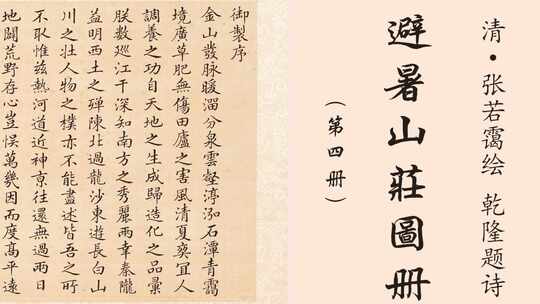 清·张若霭绘 乾隆题诗
避暑山莊圖册
(第四册)
御製序
金山發脉暖溜分泉雲壑渟泓石潭青靄
境廣草肥無傷田廬之害風清夏爽宜人
調養之功自天地之生成歸造化之品彙
朕數巡江干深知南方之秀麗兩幸秦隴
益明西土之殫陳北過龍沙東遊長白山
川之壯人物之樸亦不能盡述皆吾之所
不取惟兹熱河道近神京往還無過兩日
地闢荒野存心豈悞萬幾因而度高平遠